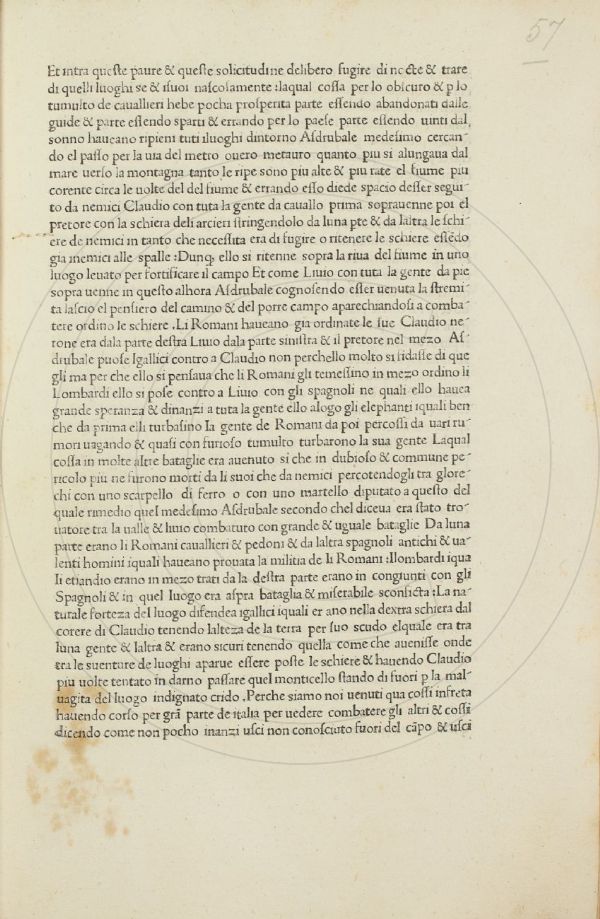 57
Et intra queſte paure & queſte solicitudine delibero fugire di nocte & trare
di quelli luoghi se & iſuoi naſcoſamente :laqual coſſa per lo obſcuro & p lo
tumulto de cauallieri hebe pocha proſperita parte eſſendo abandonati dalle
guide & parte eſſendo sparti & errando per lo paeſe parte eſſendo uinti dal,
sonno haueano ripieni tuti iluoghi dintorno Aſdrubale medeſimo cercan-
do el paſſo per la uia del metro ouero metauro quanto piu si alungaua dal
mare uerſo la montagna tanto le ripe sono piu alte & piu rate el fiume piu
corente circa le uolte del del fiume & errando eſſo diede spacio deſſer segui-
to da nemici Claudio con tuta la gente da cauallo prima soprauenne poi el
pretore con la schiera deli arcieri ſtringendolo da luna pte & da laltra le ſchi-
ere de nemici in tanto che neceſſita era di fugire o ritenere le schiere eſſēdo
gia inemici alle spalle :Dunq; ello si ritenne sopra la riua del fiume in uno
luogo leuato per fortificare il campo Et come Liuio con tuta la gente da pie
sopra uenne in queſto alhora Aſdrubale cognoſendo eſſer uenuta la ſtremi-
ta laſcio el penſiero del camino & del porre campo aparechiandoſi a comba-
tere ordino le schiere .Li Romani haueano gia ordinate le ſue Claudio ne-
rone era dala parte deſtra Liuio dala parte siniſtra & il pretore nel mezo Aſ-
drubale puoſe Igallici contro a Claudio non perchello molto si fidaſſe di que
gli ma per che ello si penſaua che li Romani gli temeſſino in mezo ordino li
Lombardi ello si poſe contro a Liuio con gli spagnoli ne quali ello hauea
grande speranza & dinanzi a tuta la gente ello alogo gli elephanti iquali ben
che da prima elli turbaſino la gente de Romani da poi percoſſi da uari ru-
mori uagando & quaſi con furioſo tumulto turbarono la sua gente Laqual
coſſa in molte altre bataglie era auenuto si che in dubioſo & commune pe-
ricolo piu ne furono morti da li suoi che da nemici percotendogli tra glore-
chi con uno scarpello di ferro o con uno martello diputato a queſto del
quale rimedio quel medeſimo Aſdrubale secondo chel diceua era ſtato tro-
uatore tra la ualle & liuio combatuto con grande & uguale bataglie Da luna
parte erano li Romani cauallieri & pedoni & da laltra spagnoli antichi & ua-
lenti homini iquali haueano prouata la militia de li Romani :Ilombardi iqua
li etiandio erano in mezo trati da la deſtra parte erano in congiunti con gli
Spagnoli & in quel luogo era aſpra bataglia & miſerabile sconficta :La na-
turale forteza del luogo difendea igallici iquali er ano nella dextra schiera dal
corere di Claudio tenendo lalteza de la terra per ſuo scudo elquale era tra
luna gente & laltra & erano sicuri tenendo quella come che aueniſſe onde
tra le suenture de luoghi aparue eſſere poſte le schiere & hauendo Claudio
piu uolte tentato in darno paſſare quel monticello ſtando di fuori p la mal-
uagita del luogo indignato crido .Perche siamo noi uenuti qua coſſi infreta
hauendo corſo per grā parte de italia per uedere combatere gli altri & coſſi
dicendo come non pocho inanzi uſci non conoſciuto fuori del cāpo & uſci